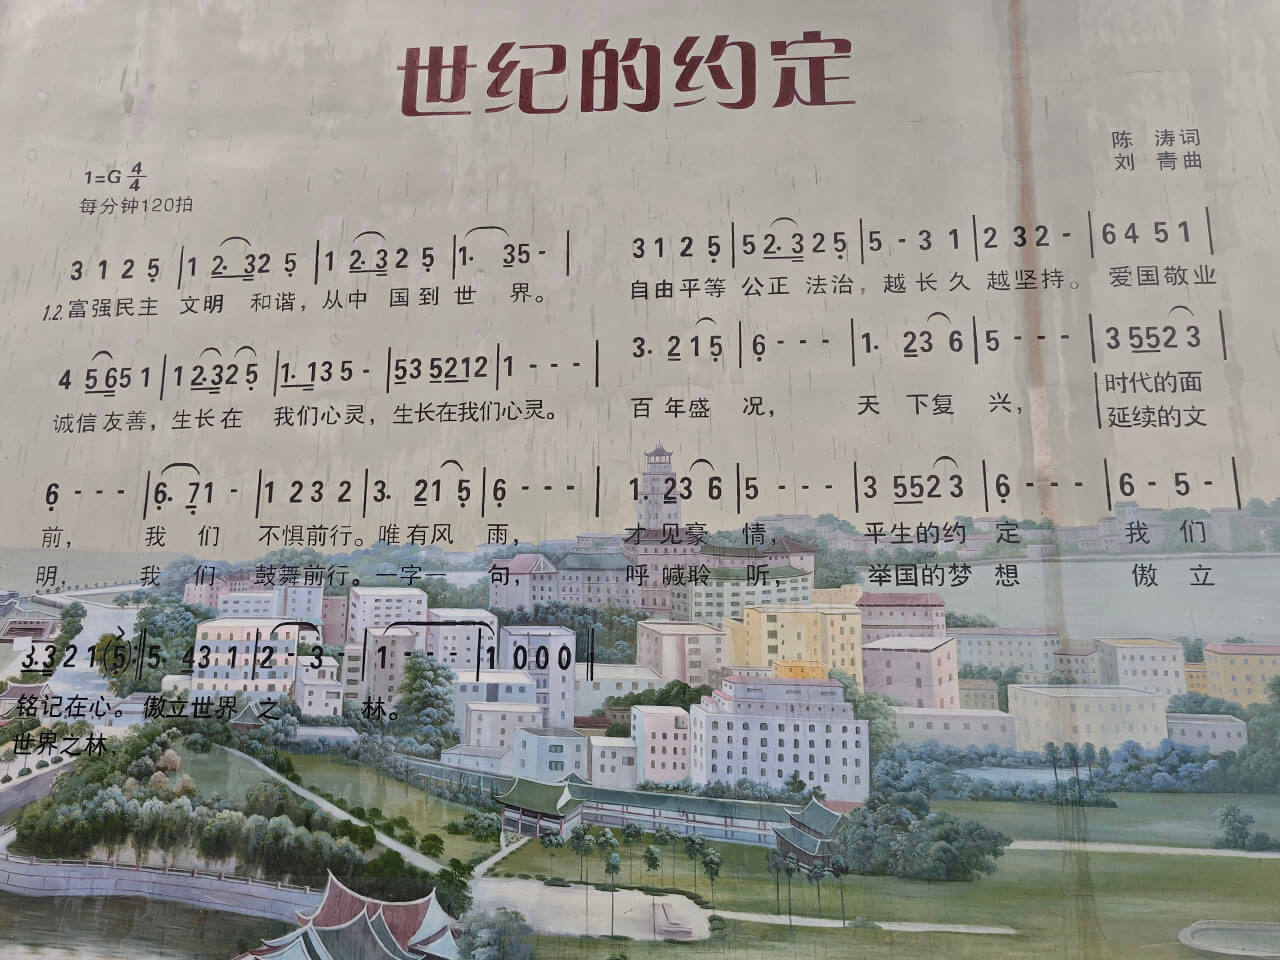 世纪的约定
陈 涛词
刘 青曲
1=G 4/4
每分钟120拍
3 1 2 5 | 1 2. 3 2 5 | 1 2. 3 2 5 | 1. 3 5 - | 3 1 2 5 | 5 2. 3 2 5 | 5 - 3 1 | 2 3 2 - | 6 4 5 1 |
1.2.富强民主 文明 和谐，从中 国到世 界。 自由平等 公正 法治，越长久 越坚持。 爱国敬业
4 5 6 5 1 | 1 2. 3 2 5 | 1. 1 3 5 - | 5 3 5 2 1 2 | 1 - - - | 3. 2 1 5 | 6 - - - | 1. 2 3 6 | 5 - - - | 3 5 5 2 3 |
诚信友善，生长在 我们心灵，生长在我们心灵。 百年盛 况， 天 下复 兴， 时代的面
延续的文
6 - - - | 6. 7 1 - | 1 2 3 2 | 3. 2 1 5 | 6 - - - | 1. 2 3 6 | 5 - - - | 3 5 5 2 3 | 6 - - - | 6 - 5 - |
前， 我 们 不惧前行。唯有风 雨， 才见豪 情， 平生的约 定 我 们
明， 我 们 鼓舞前行。一字一 句， 呼喊聆 听， 举国的梦 想 傲 立
3. 3 2 1 (5) :‖ 5. 4 3 1 | 2 - 3 - | 1 - - - | 1 0 0 0 ‖
铭记在心。傲立世界 之 林。
世界之林，